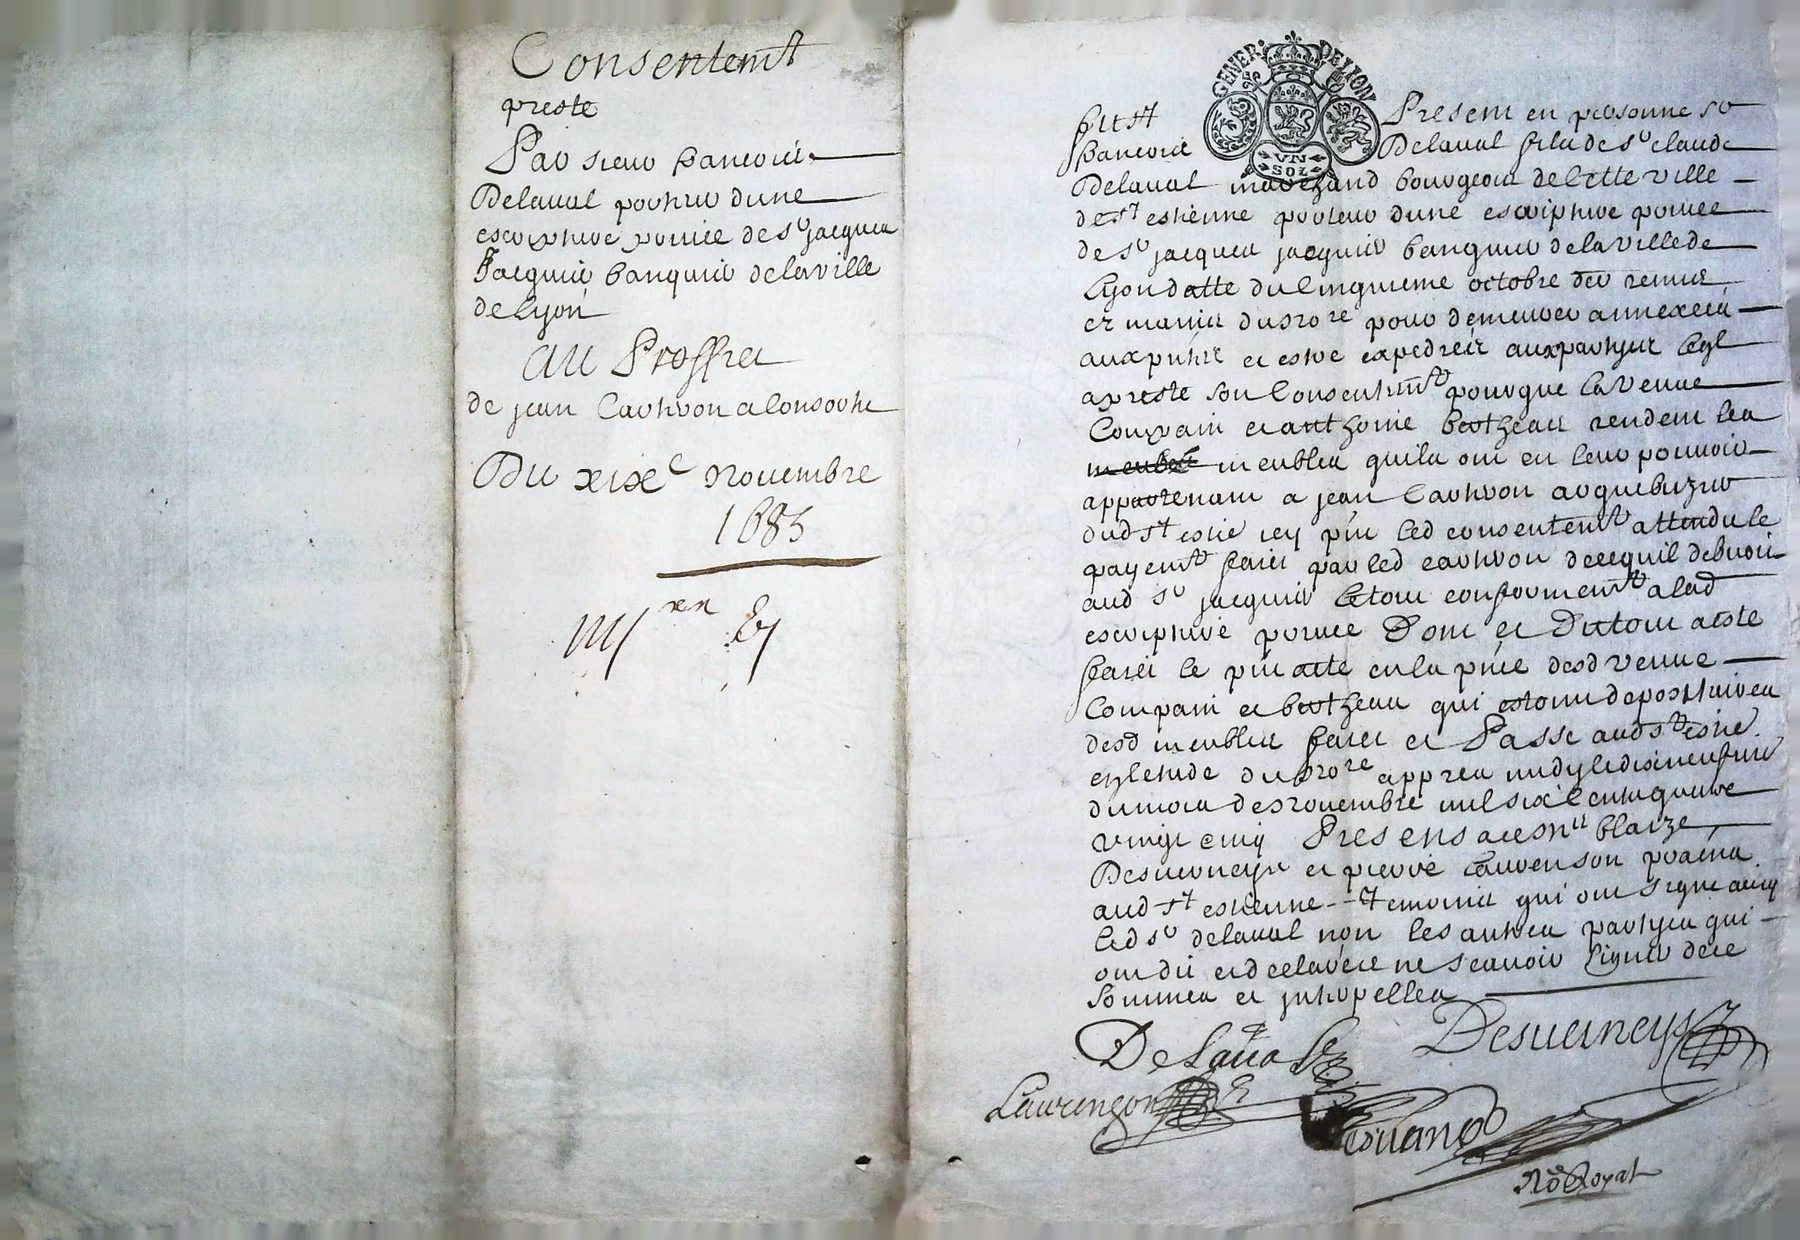 Consentemt
preste
Par sieur francois
Delaual porteur dune
escripture priuee de sr jacques
Jacquier banquier de la ville
de Lyon
Au Proffict
de jean Carteron a consorte
Du xixe Nouembre
1685
GENER: DE LYON
VN
SOL
fust Present en personne sr
francois Delaual fils de sr claude
Delaual marchand bourgeois de cette ville
de st estienne porteur dune escripture priuee
de sr jacques jacquier banquier de la ville de
Lyon datte du cinquieme octobre der remise
ez mains du nore pour demeurer annexee a
aux pntes et estre expediee aux partyes Leql
a preste son consentemt pour que la veuue
Compain et anthoine bertheas rendent les
meubles meubles quils ont en leur pouuoir
appartenant a jean Carteron arquebuzier
dud st estie icy pnt led consentemt attendu le
payemt faict par led carteron de ce quil debuoit
aud sr jacquier le tout conformemt a lad
escripture priuee Dont et Du tout a este
faict le pnt acte en la pnce desd veuue
Compain et bertheas qui estoint depositaires
desd meubles faict et Passe aud st estie
estude du nore appres midy le dixneufuie
du mois de nouembre mil six cents quatre
vingt cinq Presens a ce mre blaize
Desuerneys et pierre Laurenson pratns
aud st estienne temoins qui ont signe auecq
led sr delaual non les autres partyes qui
ont dit et declaire ne scauoir signer de ce
sommes et interpelles
Delaual
Desuerneys
Laurenson
Nore Royal